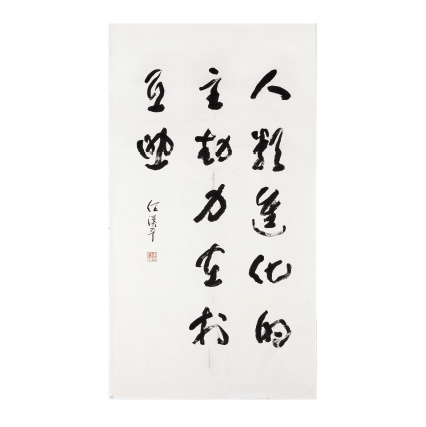 人類進化的
主動力在於
互助
任漢平